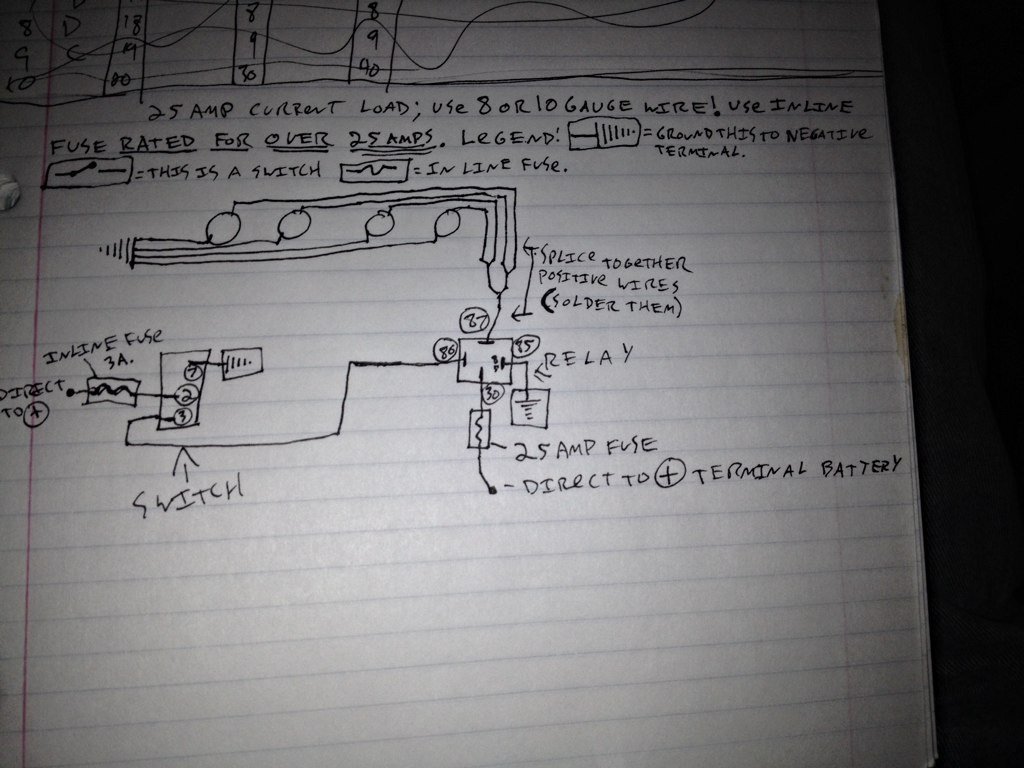 8 D 18 8 8
9 C 19 9 9
10 20 30 40
25 AMP CURRENT LOAD; USE 8 OR 10 GAUGE WIRE! USE INLINE
FUSE RATED FOR OVER 25 AMPS. LEGEND! = GROUND THIS TO NEGATIVE
TERMINAL.
= THIS IS A SWITCH = IN LINE FUSE.
SPLICE TOGETHER
POSITIVE WIRES
(SOLDER THEM)
87
86 85
RELAY
30
INLINE FUSE
3A.
DIRECT
TO +
1
2
3
25 AMP FUSE
- DIRECT TO + TERMINAL BATTERY
SWITCH